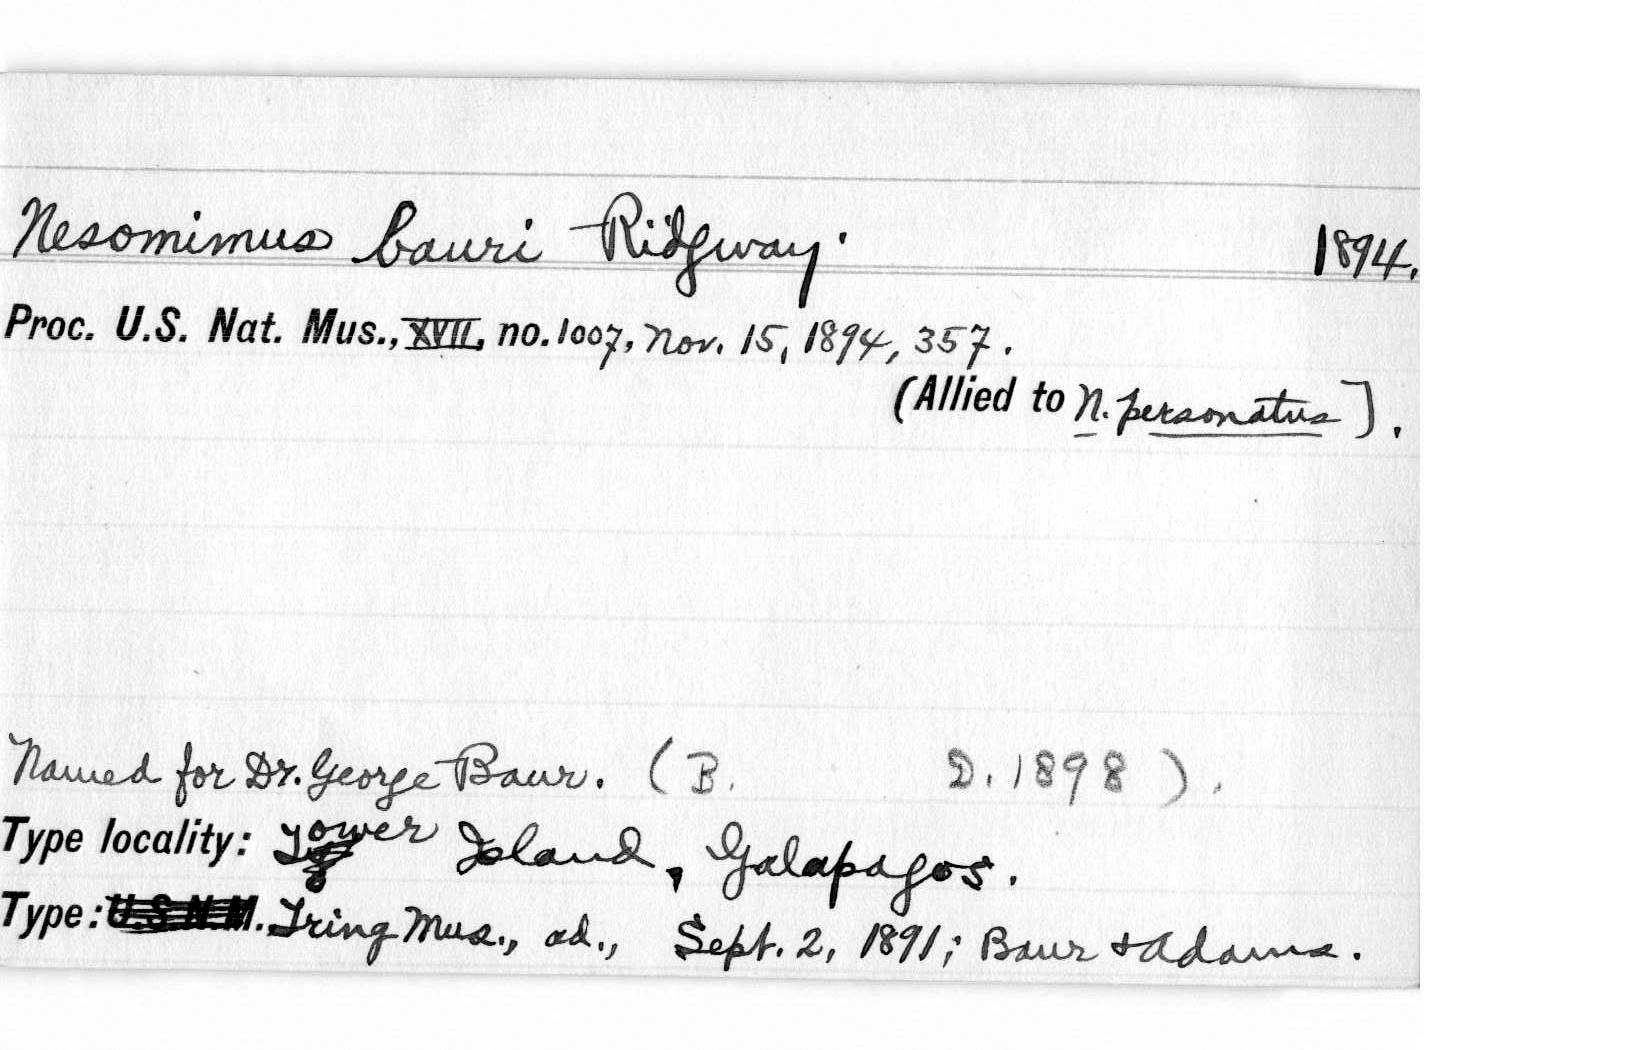 Nesomimus bauri Ridgway. 1894.
Proc. U.S. Nat. Mus., XVII, no. 1007, Nov. 15, 1894, 357.
(Allied to N. personatus].
Named for Dr. George Baur. (B. D. 1898).
Type locality: Tower Island, Galapagos.
Type: U.S.N.M. Tring Mus., ad., Sept. 2, 1891; Baur & Adams.